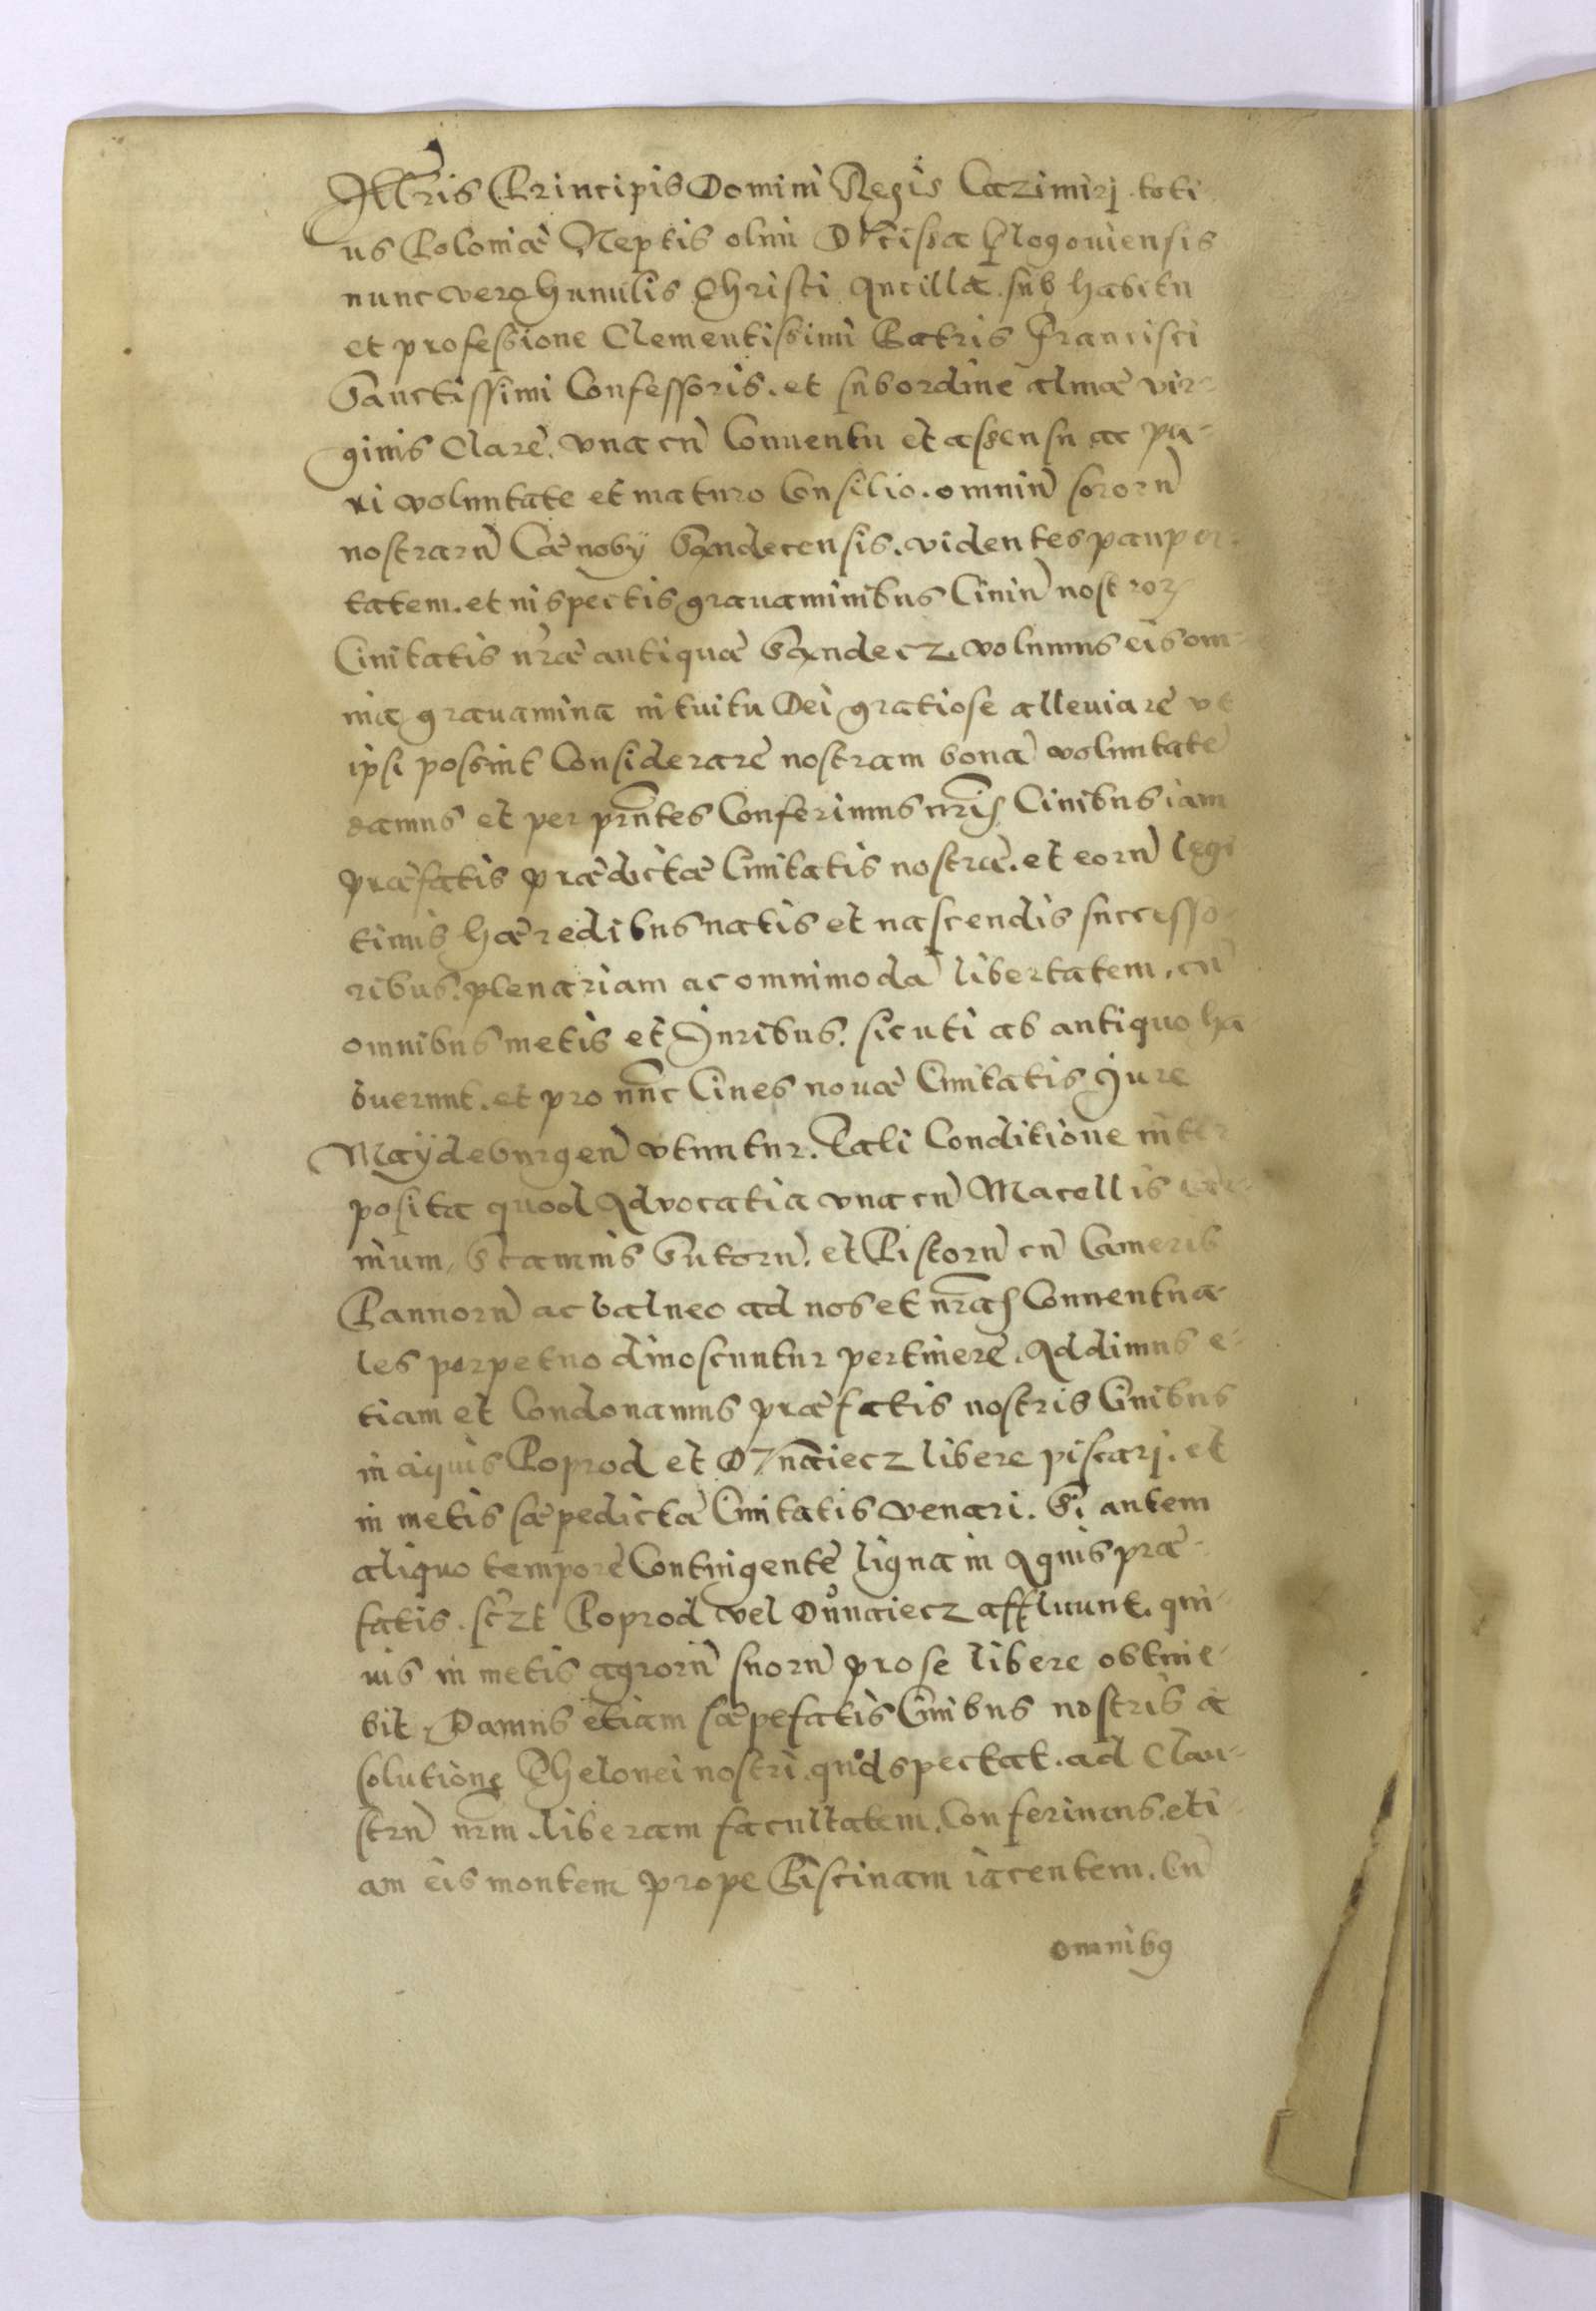 Illr̃is Principis Domini Regis Cazimirj toti
us Poloniæ Neptis olim Dũcissa Glogouiensis
nunc vero humilis Christi Ancillæ sub habitu
et professione Clementissimi Patris Francisci
Sanctissimi Confessoris. et sub ordine almæ vir-
ginis Clare. vna cũ Conuentu et assensu ac pu-
ri voluntate et maturo Consilio. omniũ sororũ
nostrarũ Cænobÿ Sandecensis. videntes pauper-
tatem. et inspectis grauaminibus Ciuiũ nostror
Ciuitatis nr̃æ antiquæ Sandecz. volumus eis om-
nia grauamina intuitu Dei gratiose alleuiare vt
ipsi possint Considerare nostram bonã voluntatẽ
damus et per pñtes Conferimus nr̃is Ciuibus iam
præfatis prædictæ Ciuitatis nostræ. et eorũ legi
timis hæredibus natis et nascendis successo-
ribus. plenariam ac omnimodã libertatem. cũ
omnibus metis et Juribus. sicuti ab antiquo ha
buerunt. et pro nũnc Ciues nouæ Ciuitatis Jure
Maÿdeburgeñ vtuntur. Tali Conditione inter
posita quod Advocatia vna cũ Macellis car-
nium, Scamnis Sutorũ. et Pistorũ cũ Cameris
Pannorũ ac balneo ad nos et nr̃as Conuentua-
les perpetuo dinoscuntur pertinere. Addimus e-
tiam et Condonamus præfatis nostris Ciuibus
in aquis Poprod et Dunaiecz libere piscarj. et
in metis sæpedictæ Ciuitatis venari. Si autem
aliquo tempore Contingente ligna in Aquis præ-
fatis. sczt Poprod vel Dunaiecz affluunt. qui-
uis in metis agrorũ suorũ pro se libere obtine-
bit. Damus etiam sæpefatis Ciuibus nostris à
solutione Thelonei nostri. quod spectat. ad Clau-
strũ nr̃m liberam facultatem. Conferimus. eti-
am eis montem prope Piscinam iacentem. Cũ
omnibg